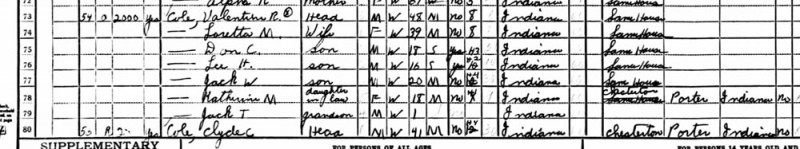 72 mother F W Indiana Same House
73 54 O 2000 yes Cole, Valentine R. Head M W 48 M no 8 Indiana Same House
74 — Loretta M. Wife F W 39 M no 8 Indiana Same House
75 — Don C. son M W 18 S yes H3 Indiana Same House
76 — Lee H. son M W 16 S yes Indiana Same House
77 — Jack W son M W 20 M no Indiana Same House
78 — Katherine M daughter in law F W 18 M no Indiana Chesterton Porter Indiana no
79 — Jack T grandson M W 1 Indiana
80 55 R yes Cole, Clyde C Head M W 41 M no Indiana Chesterton Porter Indiana no
SUPPLEMENTARY FOR PERSONS OF ALL AGES FOR PERSONS 14 YEARS OLD AND